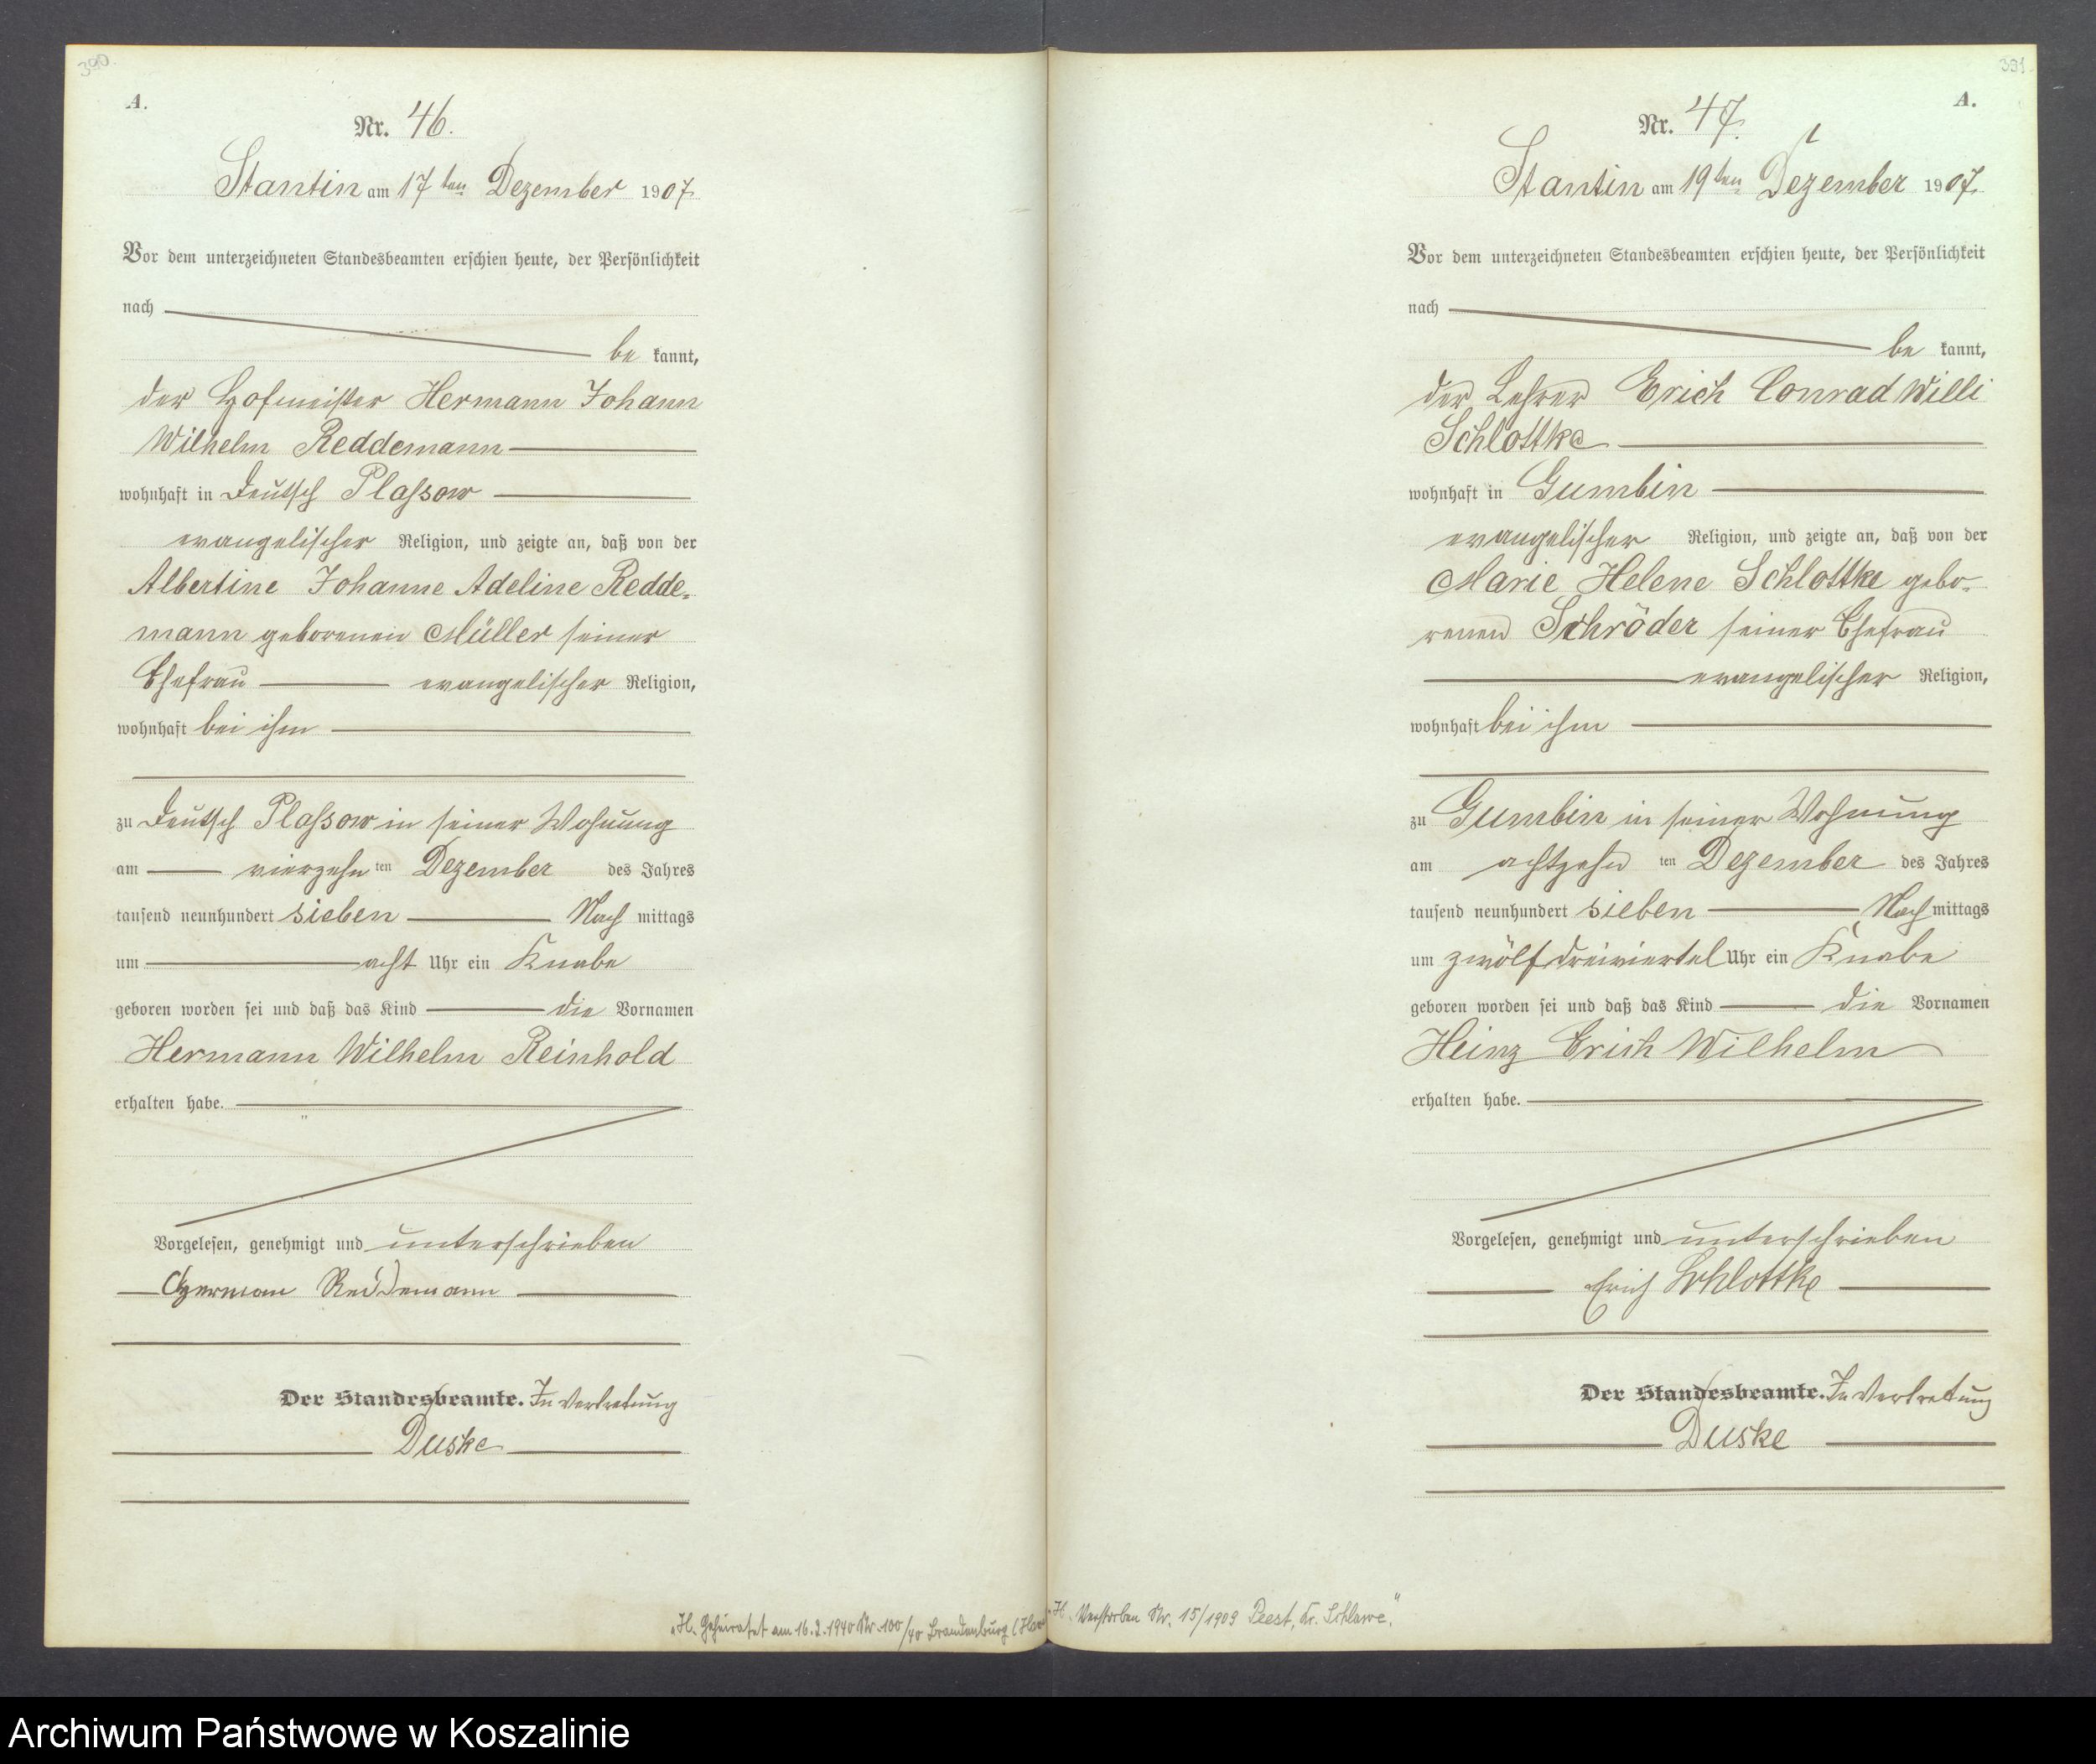 390.
A.
Nr. 46.
Stantin am 17ten Dezember 1907.
Vor dem unterzeichneten Standesbeamten erschien heute, der Persönlichkeit
nach
be kannt,
der Hofmeister Hermann Johann
Wilhelm Reddemann
wohnhaft in Deutsch Plassow
evangelischer Religion, und zeigte an, daß von der
Albertine Johanne Adeline Redde-
mann geborenen Müller seiner
Ehefrau evangelischer Religion,
wohnhaft bei ihm
zu Deutsch Plassow in seiner Wohnung
am vierzehn ten Dezember des Jahres
tausend neunhundert sieben Nach mittags
um acht Uhr ein Knabe
geboren worden sei und daß das Kind die Vornamen
Hermann Wilhelm Reinhold
erhalten habe.
Vorgelesen, genehmigt und unterschrieben
Herman Reddemann
Der Standesbeamte. In Vertretung
Duske
„H. Geheiratet am 16.2.1940 Nr. 100/40 Brandenburg
391.
A.
Nr. 47.
Stantin am 19ten Dezember 1907.
Vor dem unterzeichneten Standesbeamten erschien heute, der Persönlichkeit
nach
be kannt,
der Lehrer Erich Conrad Willi
Schlottke
wohnhaft in Gumbin
evangelischer Religion, und zeigte an, daß von der
Marie Helene Schlottke gebo-
renen Schröder seiner Ehefrau
evangelischer Religion,
wohnhaft bei ihm
zu Gumbin in seiner Wohnung
am achtzehn ten Dezember des Jahres
tausend neunhundert sieben Nach mittags
um zwölf dreiviertel Uhr ein Knabe
geboren worden sei und daß das Kind die Vornamen
Heinz Erich Wilhelm
erhalten habe.
Vorgelesen, genehmigt und unterschrieben
Erich Schlottke
Der Standesbeamte. In Vertretung
Duske
„H. Verstorben Nr. 15/1909 Peest, Kr. Schlawe."
Archiwum Państwowe w Koszalinie